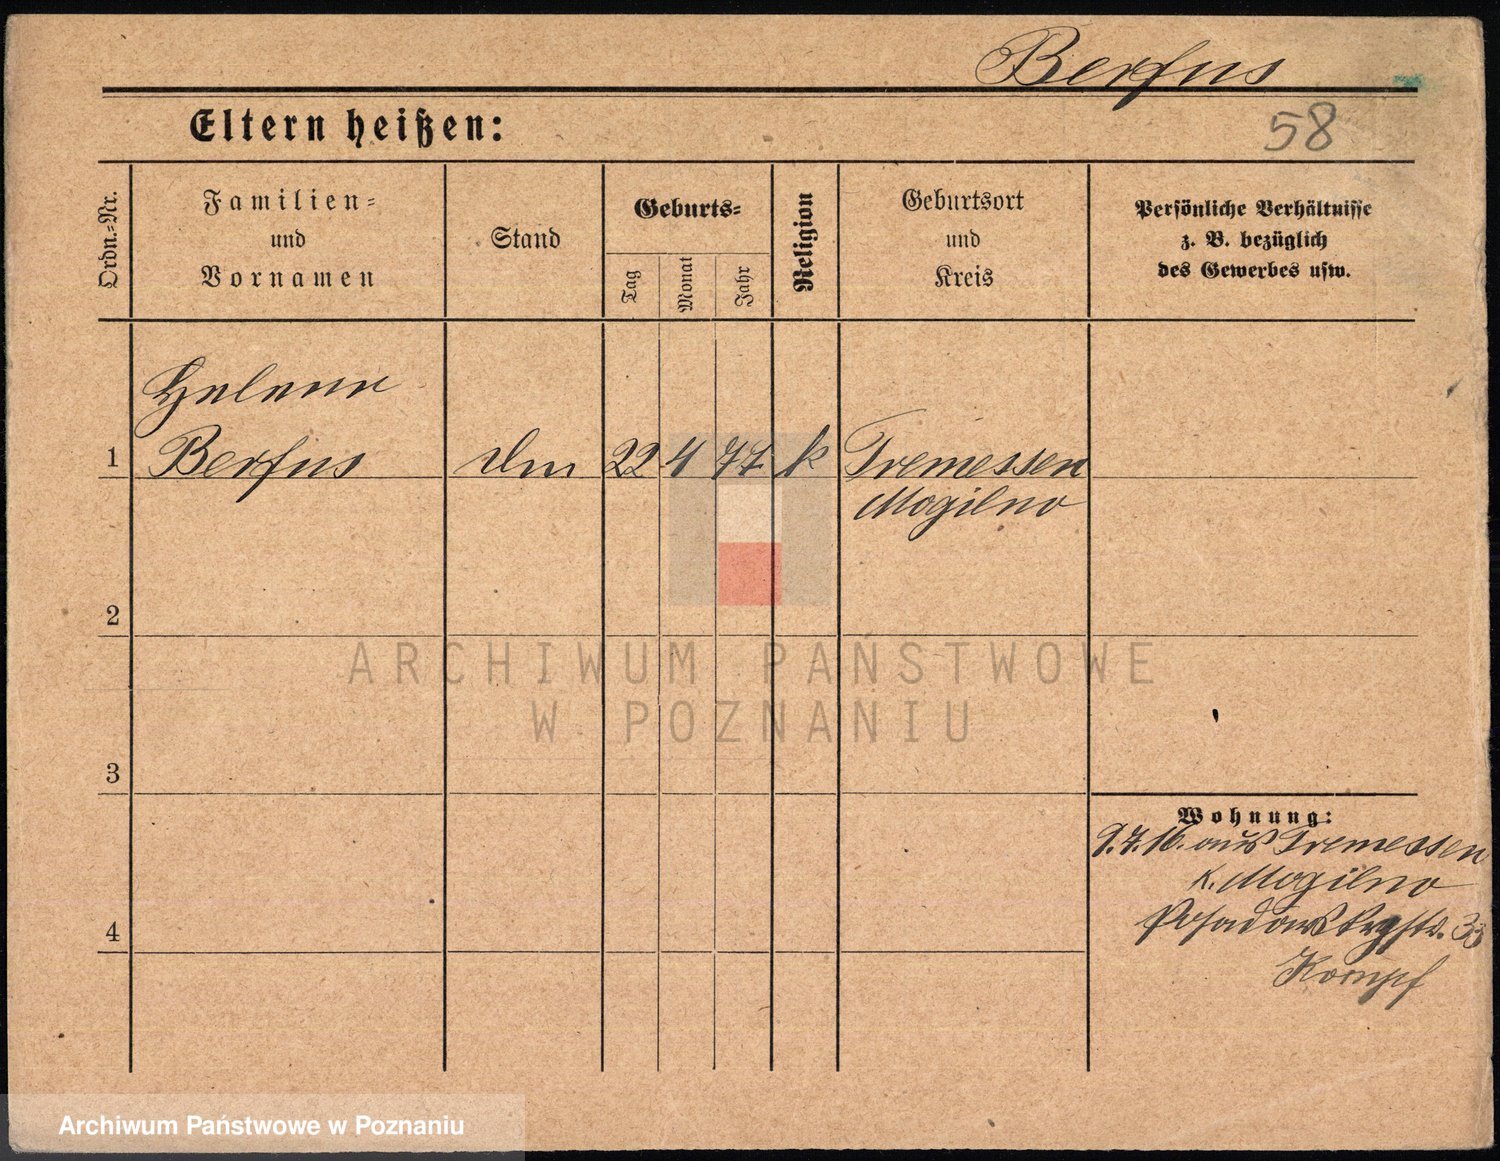 Berfus
Eltern heißen:
58
Ordn.-Nr.
Familien-
und
Vornamen
Stand
Geburts-
Tag
Monat
Jahr
Religion
Geburtsort
und
Kreis
Persönliche Verhältnisse
z. B. bezüglich
des Gewerbes usw.
Helene
1 Berfus 22 4 77 k Tremessen
Mogilno
2
3
4
Wohnung:
9.7.16. aus Tremessen
K. Mogilno
33
Kompf
ARCHIWUM PAŃSTWOWE
W POZNANIU
Archiwum Państwowe w Poznaniu